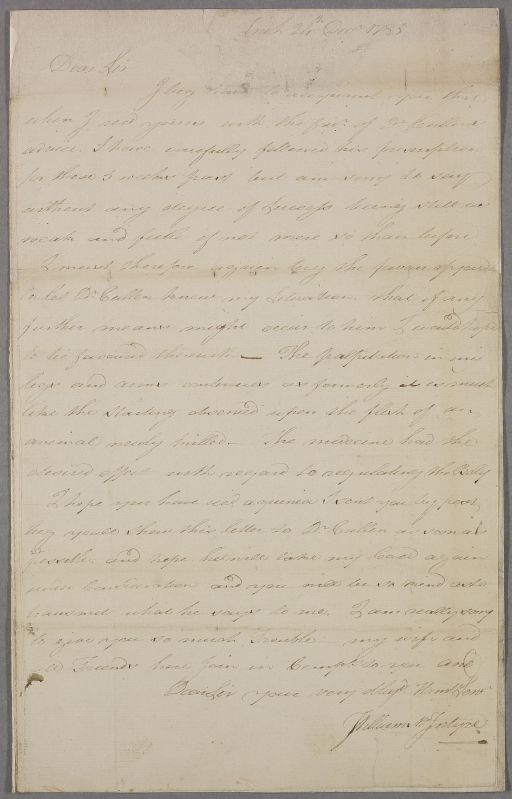 24th Decr. 1785
Dear Sir
I beg leave to acquaint you that
when I recd yours with the favr. of Dr Cullens
advice. I have carefully followed his prescription
for these 5 weeks past but am sorry to say
without any degree of Success being still as
weak and feeble if not more so than before
I must therefore again beg the favour of you
to let Dr. Cullen know my Situation. that if any
further means might occur to him I would hope
to be favoured therewith — The palpitation in my
legs and arms continues as formerly it is much
like the starting observed upon the flesh of an
animal newly killed — The medecine had the
desired effect with regard to regulating the Belly
I hope you have recd a guinea I sent you by post,
beg youll shew this letter to Dr. Cullen as soon as
possible. and hope he will take my Case again
under Consideration and you will be so kind as to
transmit what he says to me. I am really sorry
to give you so much trouble — my wife and
all Friends here join in Compts. to you and
Dear Sir your very obligd Humle Servt
William McIntyre